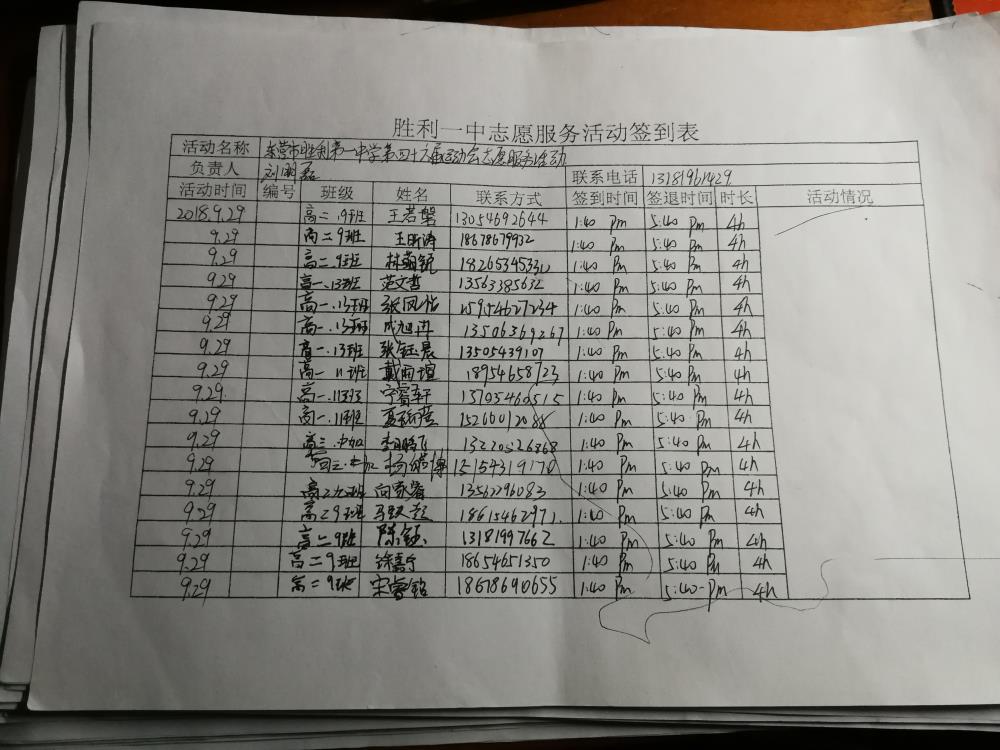 胜利一中志愿服务活动签到表
活动名称 东营市胜利第一中学第四十六届运动会志愿服务活动
负责人 刘明磊 联系电话 13181961429
活动时间 编号 班级 姓名 联系方式 签到时间 签退时间 时长 活动情况
2018.9.29 高二.9班 王若磐 13054692644 1:40 Pm 5:40 Pm 4h
9.29 高二9班 王昕涛 18678679932 1:40 Pm 5:40 Pm 4h
9.29 高二.9班 1:40 Pm 5:40 Pm 4h
9.29 高一.13班 范文哲 13563385632 1:40 Pm 5:40 Pm 4h
9.29 高一.13班 张风恺 15954627234 1:40 Pm 5:40 Pm 4h
9.29 高一.13班 成旭冉 13506369267 1:40 Pm 5:40 Pm 4h
9.29 高一.13班 张钰晨 13505439107 1:40 Pm 5:40 Pm 4h
9.29 高一 11班 18954658723 1:40 Pm 5:40 Pm 4h
9.29 高一.11班 宁睿轩 13705460515 1:40 Pm 5:40 Pm 4h
9.29 高一.11班 15266012088 1:40 Pm 5:40 Pm 4h
9.29 高三.中加 李鹏飞 13220526868 1:40 Pm 5:40 Pm 4h
9.29 高三.中加 15154319170 1:40 Pm 5:40 Pm 4h
9.29 高二九班 向家睿 13562296083 1:40 Pm 5:40 Pm 4h
9.29 高二9班 18615462971 1:40 Pm 5:40 Pm 4h
9.29 高二9班 陈钰 13181997662 1:40 Pm 5:40 Pm 4h
9.29 高二9班 徐嘉宁 18654651350 1:40 Pm 5:40 Pm 4h
9.29 高二9班 宋睿铭 18678690655 1:40 Pm 5:40 Pm 4h